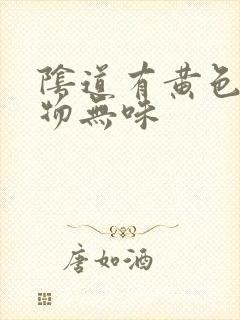 陰道有黄色
物無味
唐如酒